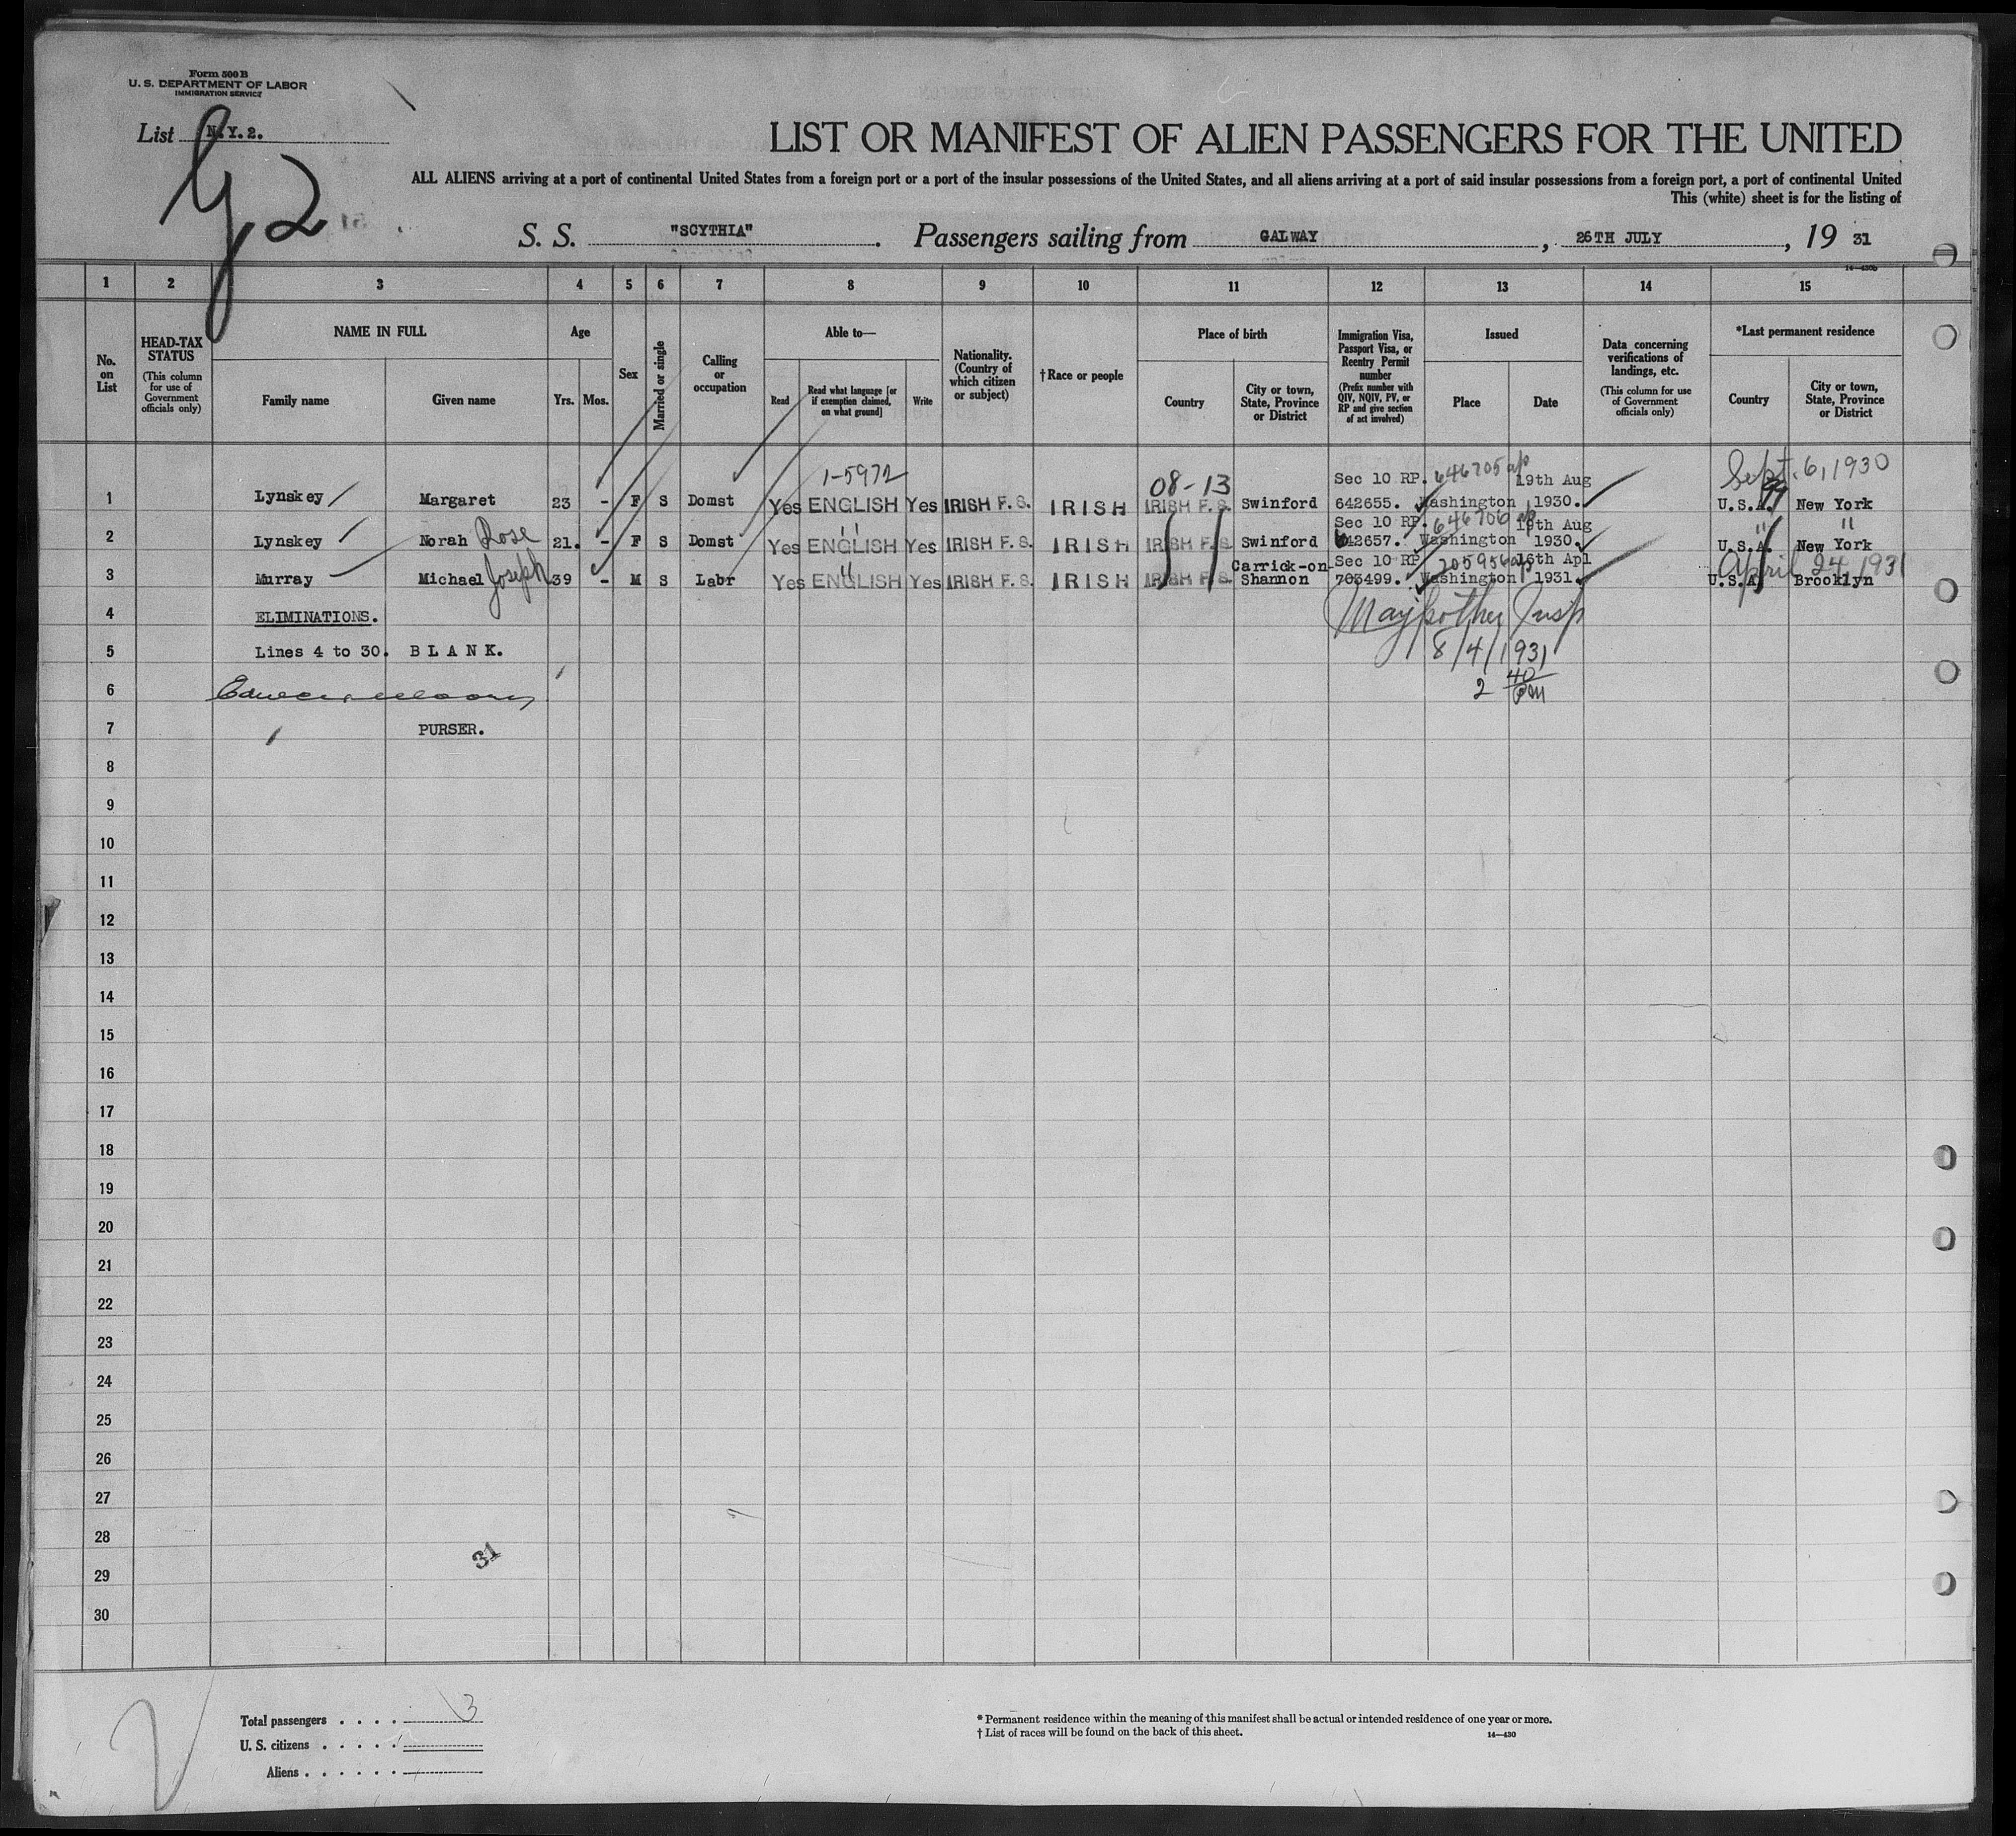 Form 500 B
U. S. DEPARTMENT OF LABOR
IMMIGRATION SERVICE
List N.Y.2.
G 2
LIST OR MANIFEST OF ALIEN PASSENGERS FOR THE UNITED
ALL ALIENS arriving at a port of continental United States from a foreign port or a port of the insular possessions of the United States, and all aliens arriving at a port of said insular possessions from a foreign port, a port of continental United
This (white) sheet is for the listing of
S. S. "SCYTHIA". Passengers sailing from GALWAY, 26TH JULY, 19 31
14—430b
1 2 3 4 5 6 7 8 9 10 11 12 13 14 15
No. on List
HEAD-TAX STATUS (This column for use of Government officials only)
NAME IN FULL
Family name
Given name
Age
Yrs. Mos.
Sex
Married or single
Calling or occupation
Able to—
Read
Read what language [or if exemption claimed, on what ground]
Write
Nationality. (Country of which citizen or subject)
† Race or people
Place of birth
Country
City or town, State, Province or District
Immigration Visa, Passport Visa, or Reentry Permit number (Prefix number with QIV, NQIV, PV, or RP and give section of act involved)
Issued
Place
Date
Data concerning verifications of landings, etc. (This column for use of Government officials only)
*Last permanent residence
Country
City or town, State, Province or District
1-5972 08-13 Sec 10 RP. 646705 19th Aug Sept. 6, 1930
1 Lynskey Margaret 23 - F S Domst Yes ENGLISH Yes IRISH F. S. IRISH IRISH F. S. Swinford 642655. Washington 1930. U.S.A. New York
" Sec 10 RP. 646706 19th Aug " "
2 Lynskey Norah Rose 21. - F S Domst Yes ENGLISH Yes IRISH F. S. IRISH IRISH F. S. Swinford 642657. Washington 1930. U.S.A. New York
" Carrick-on- Sec 10 RP 205956 16th Apl April 24, 1931
3 Murray Michael Joseph 39 - M S Labr Yes ENGLISH Yes IRISH F. S. IRISH IRISH F. S. Shannon 703499. Washington 1931. U.S.A. Brooklyn
4 ELIMINATIONS. Insp
5 Lines 4 to 30. B L A N K. 8/4/1931
6 2 40 pm
7 PURSER.
8
9
10
11
12
13
14
15
16
17
18
19
20
21
22
23
24
25
26
27
28
31
29
30
Total passengers . . . . 3
U. S. citizens . . . . .
Aliens . . . . . .
* Permanent residence within the meaning of this manifest shall be actual or intended residence of one year or more.
† List of races will be found on the back of this sheet.
14—430